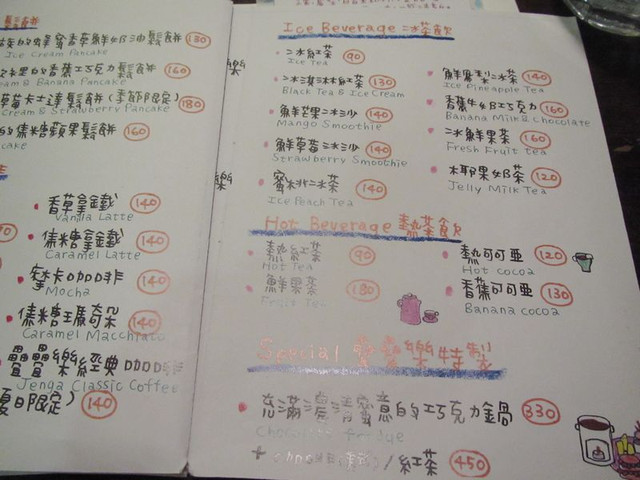 鬆餅
蜂蜜奶油鬆餅 130
Ice Cream Pancake
香蕉巧克力鬆餅 160
Cream & Banana Pancake
草莓卡士達鬆餅(季節限定) 180
Cream & Strawberry Pancake
焦糖蘋果鬆餅 160
香草拿鐵 140
Vanilla Latte
焦糖拿鐵 140
Caramel Latte
摩卡咖啡 140
Mocha
焦糖瑪奇朵 140
Caramel Macchiato
疊疊樂經典咖啡
Jenga Classic Coffee
夏日限定) 140
Ice Beverage 冰茶飲
冰紅茶 90
Ice Tea
冰淇淋紅茶 130
Black Tea & Ice Cream
鮮芒果冰沙 140
Mango Smoothie
鮮草莓冰沙 140
Strawberry Smoothie
蜜桃冰茶 140
Ice Peach Tea
鮮鳳梨冰茶 140
Ice Pineapple Tea
香蕉牛奶巧克力 160
Banana Milk & Chocolate
冰鮮果茶 160
Fresh Fruit tea
椰果奶茶 120
Jelly Milk Tea
Hot Beverage 熱茶飲
熱紅茶 90
Hot Tea
鮮果茶 180
Fruit Tea
熱可可亞 120
Hot cocoa
香蕉可可亞 130
Banana cocoa
Special 疊疊樂特製
充滿濃情蜜意的巧克力鍋 330
Chocolate fondue
/紅茶 450